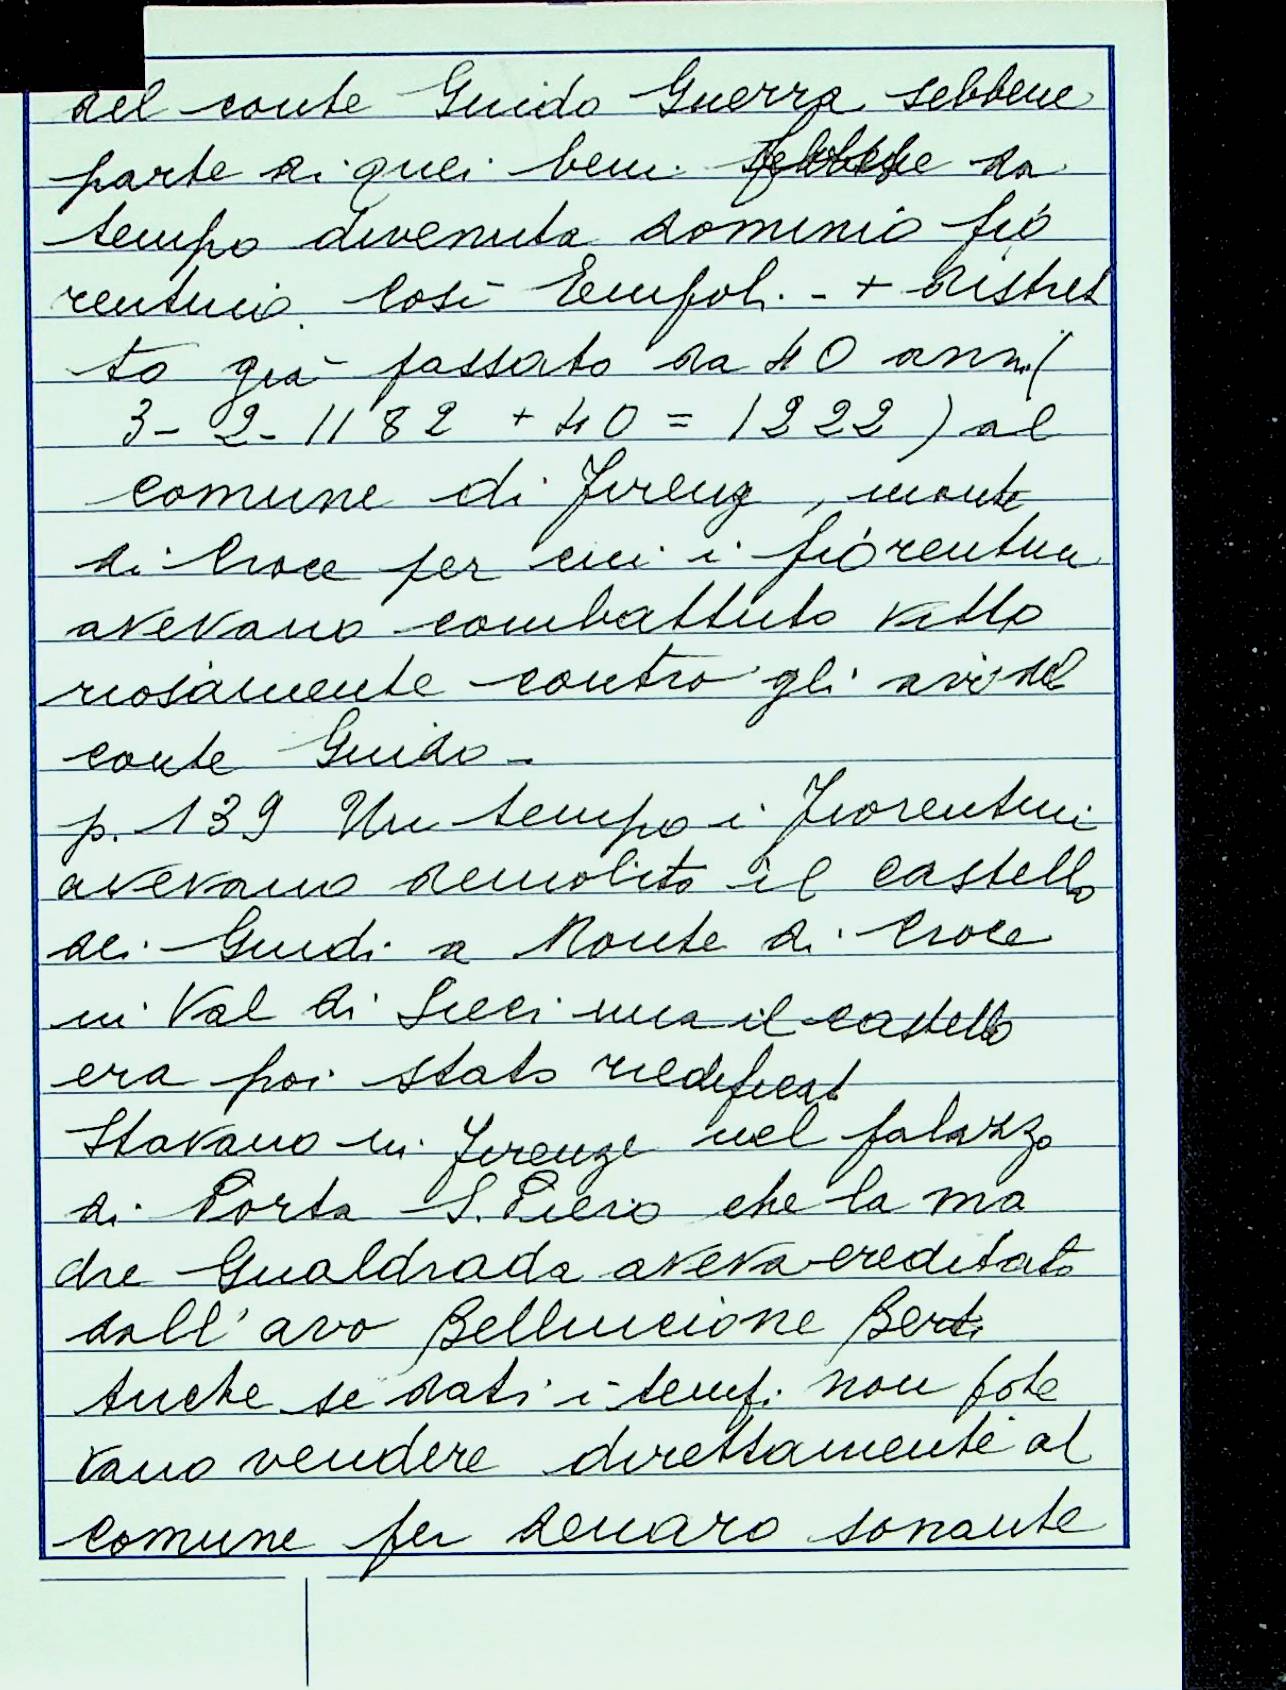 del conte Guido Guerra sebbene
parte di quei beni da
tempo divenuta dominio fio
rentino. Così Empoli. - + distret
to già passato da 40 anni (
3-2-1182 + 40 = 1222) al
comune di Firenz, monte
di Croce per cui i fiorentini
avevano combattuto vitto
riosamente contro gli avi del
conte Guido -
p. 139 Un tempo i Fiorentini
avevano demolito il castello
dei Guidi a Monte di Croce
in Val di Sieci ma il castello
era poi stato riedificat
Stavano in Firenze nel palazzo
di Porta S. Piero che la ma
dre Gualdrada aveva ereditato
dall'avo Bellincione Berti
Anche se dati i tempi non pote
vano vendere direttamente al
comune per denaro sonante